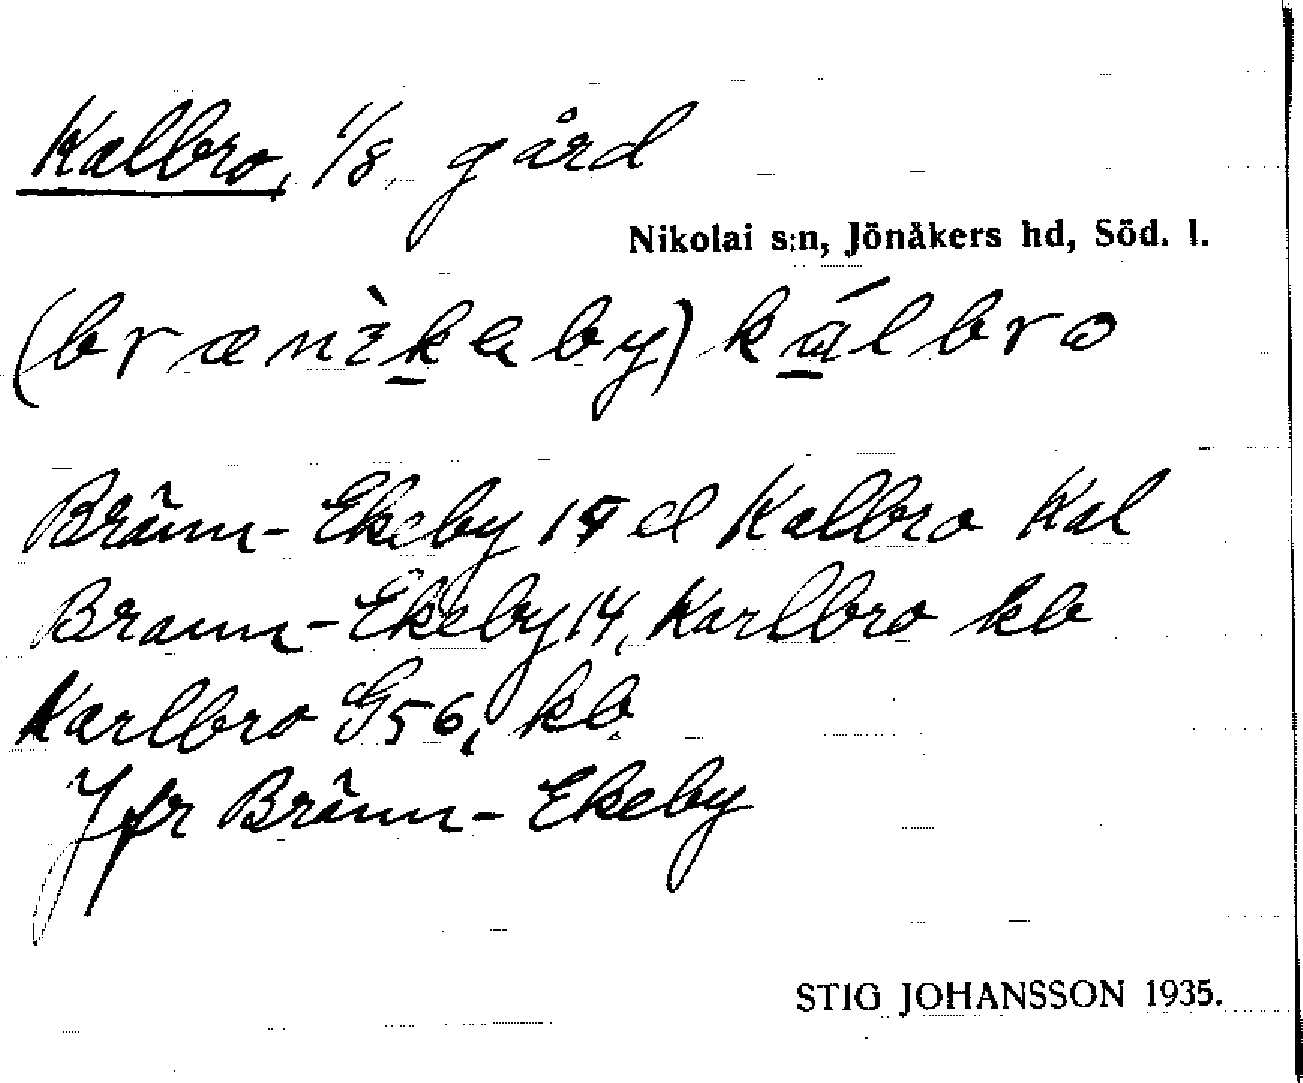 Kalbro, 1/8 gård
Nikolai s:n, Jönåkers hd, Söd. l.
kálbro
Bränn-Ekeby el Kalbro Kal
Brann-Ekeby 14, Karlbro kb
Karlbro G56, kb
Jfr Bränn-Ekeby
STIG JOHANSSON 1935.